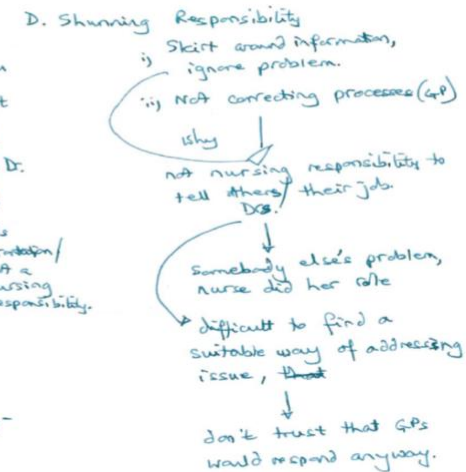 D. Shunning Responsibility
i) Skirt around information,
ignore problem.
ii) Not correcting processes (GP)
why
not nursing responsibility to
tell others/ their job.
Drs.
somebody else's problem,
nurse did her role
difficult to find a
suitable way of addressing
issue, that
don't trust that GPs
would respond anyway.
Dr.
A a
ursing
esponsibility.